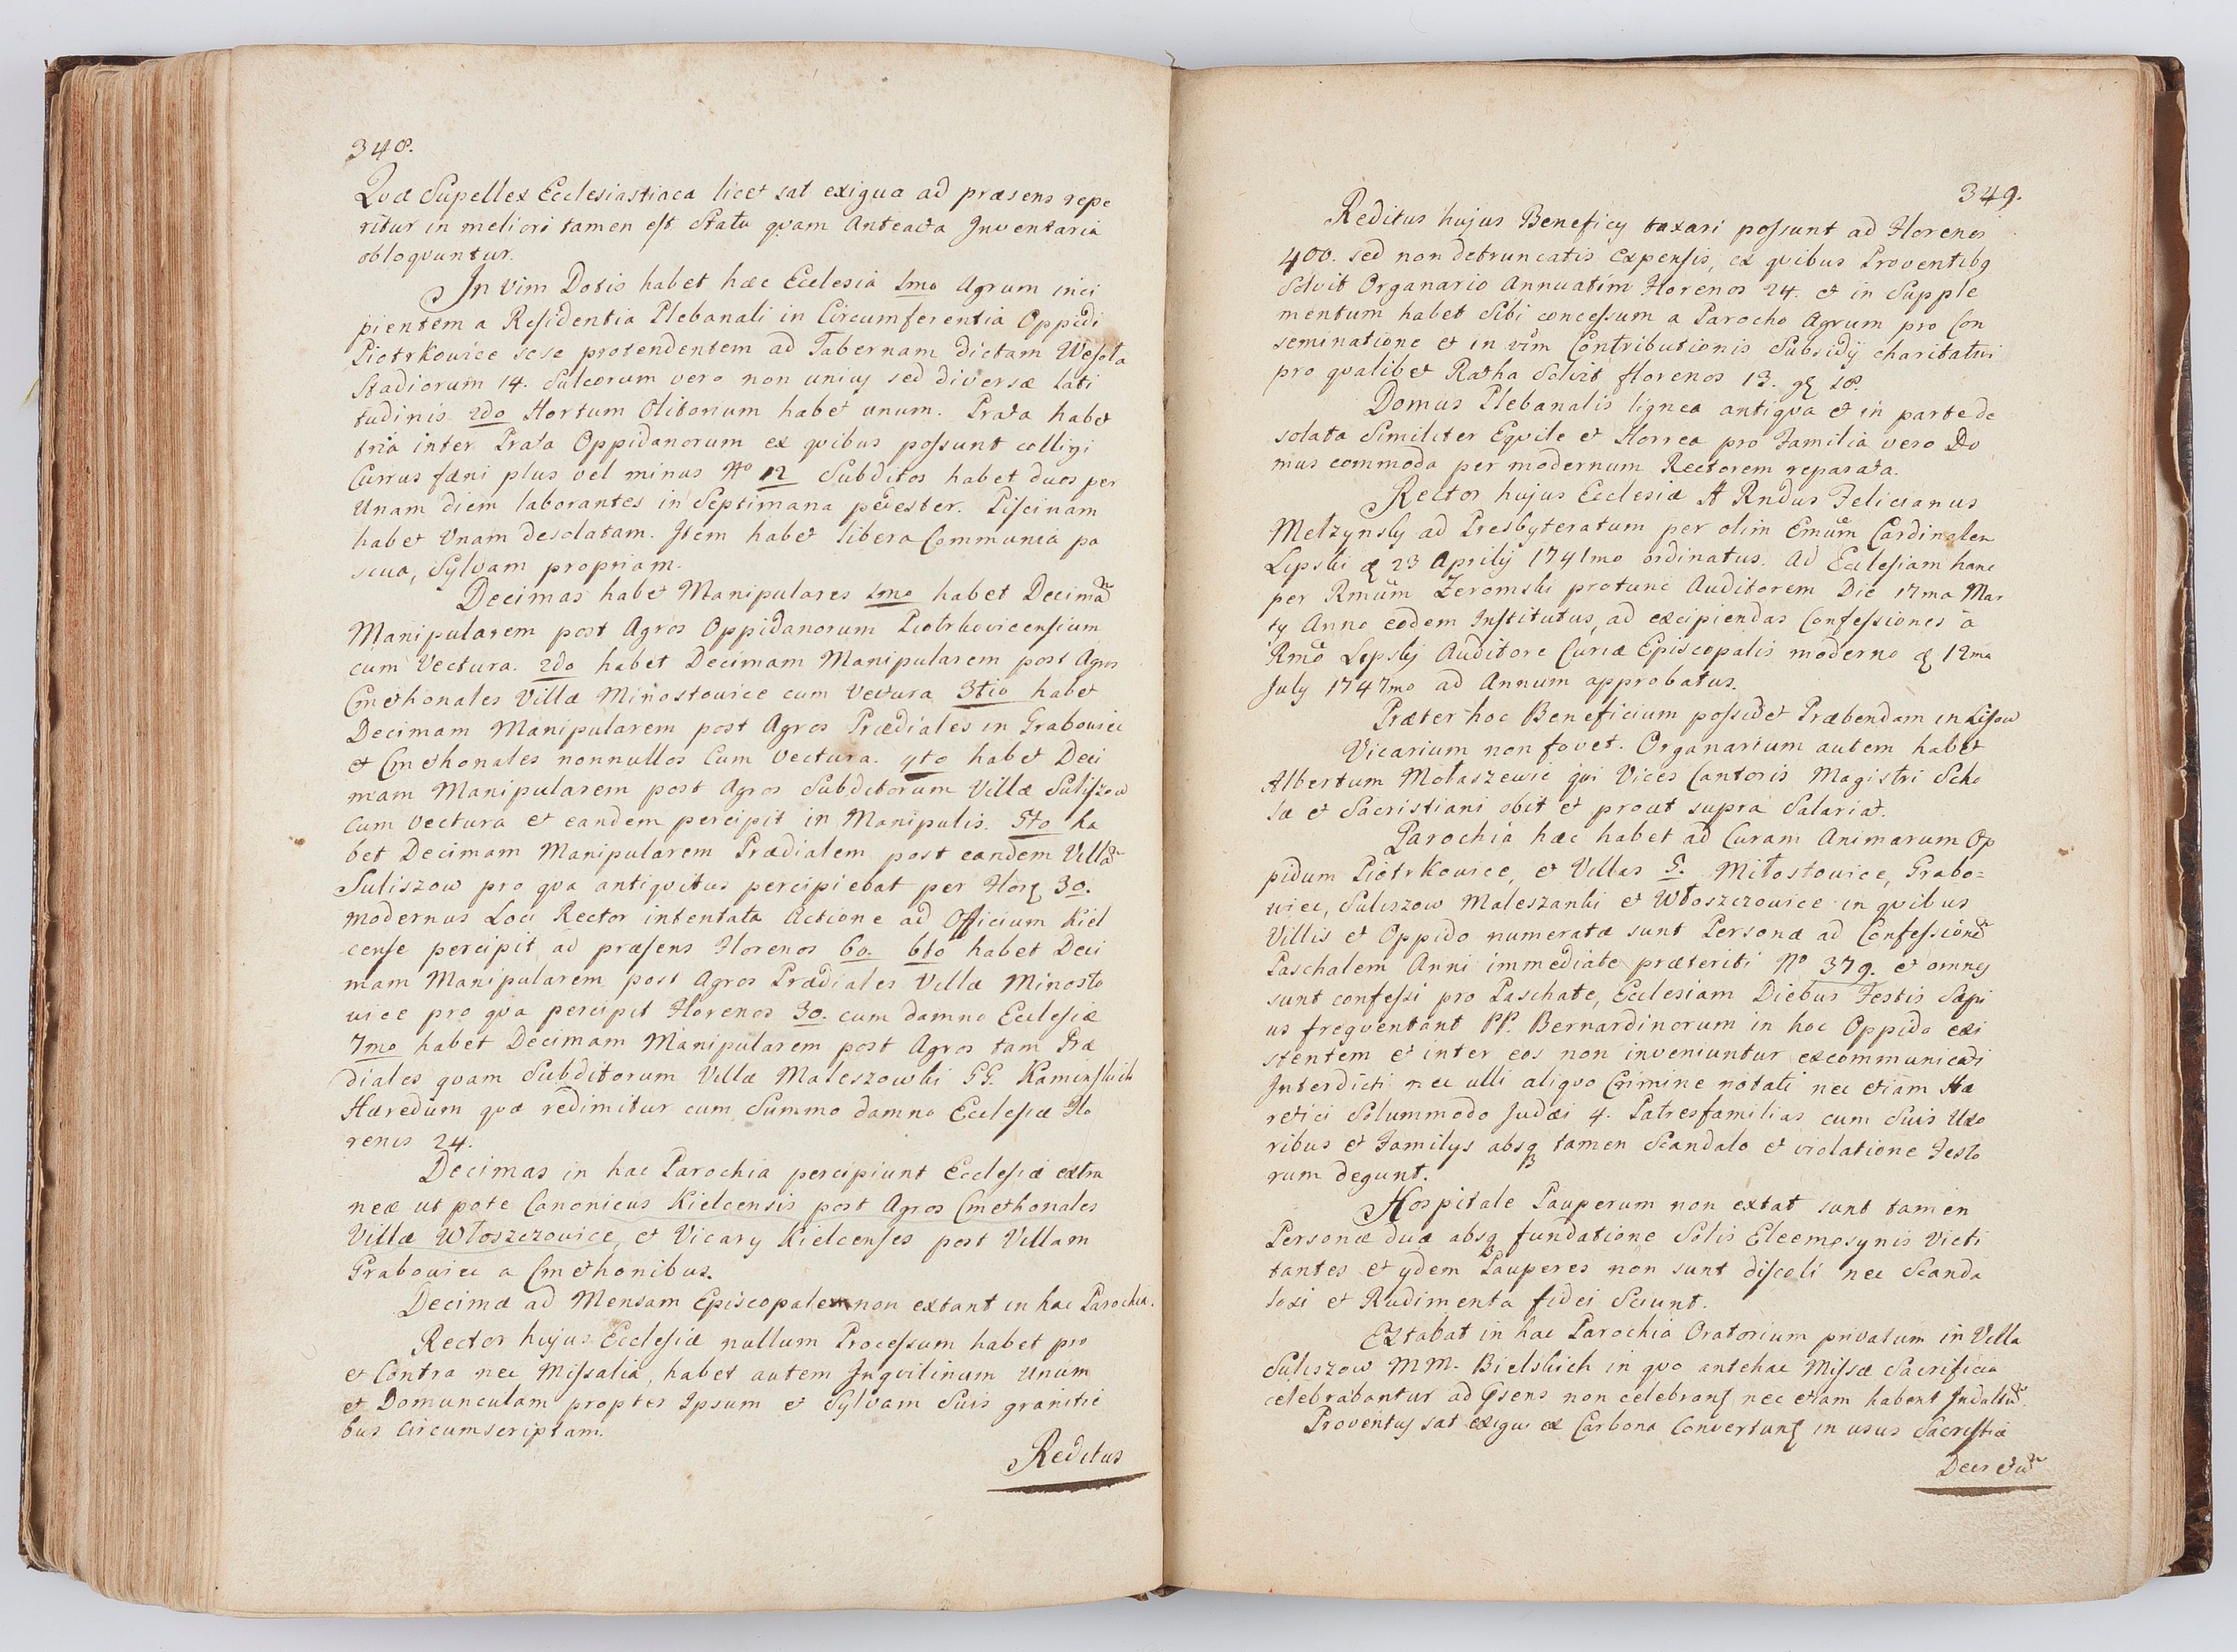 348.
Quæ Supellex Ecclesiastiaca licet sat exigua ad præsens repe
ritur in meliori tamen est Statu quam Anteacta Inventaria
obloquuntur.
In vim Dotis habet hæc Ecclesia 1mo Agrum inci
pientem a Residentia Plebanali in Circumferentia Oppidi
Piotrkowice sese protendentem ad Tabernam dictam Wesoła
Stadiorum 14. Sulcorum vero non unius sed diversæ Lati
tudinis. 2do Hortum Olitorium habet unum. Prata habet
tria inter Prata Oppidanorum ex quibus possunt colligi
Currus fæni plus vel minus No 12 Subditos habet duos per
Unam diem laborantes in Septimana pedester. Piscinam
habet Unam desolatam. Item habet libera Communia pa
scua, Sylvam propriam.
Decimas habet Manipulares 1mo habet Decimã
Manipularem post Agros Oppidanorum Piotrkovicensium
cum Vectura. 2do habet Decimam Manipularem post Agros
Cmethonales Villæ Minostowice cum Vectura 3tio habet
Decimam Manipularem post Agros Prædiales in Grabowiec
et Cmethonales nonnullos Cum Vectura. 4to habet Deci
mam Manipularem post Agros Subditorum Villæ Suliszow
cum Vectura et eandem percipit in Manipulis. 5to ha
bet Decimam Manipularem Prædialem post eandem Villã
Suliszow pro qva antiqvitus percipiebat per Flor 30.
modernus Loci Rector intentata Actione ad Officium Kiel
cense percipit ad præsens Florenos 60. 6to habet Deci
mam Manipularem post Agros Prædiales Villæ Minosto
wice pro qva percipit Florenos 30. cum damno Ecclesiæ
7mo habet Decimam Manipularem post Agros tam Præ
diales quam Subditorum Villæ Maleszowki GG. Kaminskich
Hæredum quæ redimitur cum Summo damno Ecclesiæ Flo
renis 24.
Decimas in hac Parochia percipiunt Ecclesiæ extra
neæ ut pote Canonicus Kielcensis post Agros Cmethonales
Villæ Włoszczowice, et Vicary Kielcenses post Villam
Grabowiec a Cmethonibus.
Decimæ ad Mensam Episcopalem non extant in hac Parochia.
Rector hujus Ecclesiæ nullum Processum habet pro
et Contra nec Missalia, habet autem Inqvilinum Unum
et Domunculam propter Ipsum et Sylvam Suis granitie
bus Circumscriptam.
Reditus
349.
Reditus hujus Beneficy taxari possunt ad Florenos
400. sed non detruncatis Expensis, ex qvibus Proventibq
Solvit Organario Annuatim Florenos 24. et in Supple
mentum habet Sibi concessum a Parocho Agrum pro Con
seminatione et in vim Contributionis Subsidy charitativi
pro qvalibet Ratha Solvit florenos 13. gr 18.
Domus Plebanalis lignea antiqva et in parte de
solata Similiter Eqvile et Horrea pro Familia vero Do
mus commoda per modernum Rectorem reparata.
Rector hujus Ecclesiæ A Rndus Felicianus
Metzynsky ad Presbyteratum per olim Emũm Cardinalem
Lipski 23 Aprily 1741mo ordinatus. Ad Ecclesiam hanc
per Rmũm Zeromski protunc Auditorem Die 17ma Mar
ty Anno eodem Institutus, ad excipiendas Confessiones à
Rmõ Lipsky Auditore Curiæ Episcopalis moderno 12ma
July 1747mo ad Annum approbatus.
Præter hoc Beneficium possidet Præbendam in Lisow
Vicarium non fovet. Organarium autem habet
Albertum Mołaszewic qvi Vices Cantoris Magistri Scho
læ et Sacristiani obit et prout supra Salariat.
Parochia hæc habet ad Curam Animarum Op
pidum Piotrkowice, et Villas 5. Miłostowice, Grabo=
wiec, Suliszow Maleszanki et Włoszczowice in qvibus
Villis et Oppido numeratæ sunt Personæ ad Confessionẽ
Paschalem Anni immediate præteriti No 379. et omnes
sunt confessi pro Paschate, Ecclesiam Diebus Festis Sæpi
us freqventant PP. Bernardinorum in hoc Oppido exi
stentem et inter eos non inveniuntur excommunicati
Interdicti nec ulli aliqvo Crimine notati nec etiam Hæ
retici Solummodo Judæi 4. Patresfamilias cum Suis Uxo
ribus et Familys absq tamen Scandalo et violatione Festo
rum degunt.
Hospitale Pauperum non extat sunt tamen
Personæ duæ absq fundatione Solis Eleemosynis Victi
tantes et ydem Pauperes non sunt discoli nec Scanda
losi et Rudimenta fidei Sciunt.
Extabat in hac Parochia Oratorium privatum in Villa
Suliszow MM. Bielskich in qvo antehac Missæ Sacrificia
celebrabantur ad psens non celebrant nec etiam habent Indultũ.
Proventus sat exigui ex Carbona Convertunt in usus Sacristiæ
Decretũ